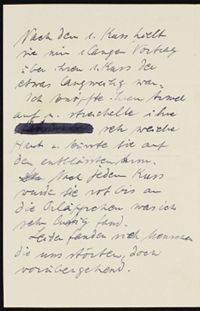 Nach dem 1. Kuss hielt
sie mir 1 langen Vortrag
über ihren 1. Kuss der
etwas langweilig war.
Ich knöpfte ihren Ärmel
auf u. streichelte ihre
sehr weiche
Haut u. küsste sie auf
den entblössten Arm.
Nach jedem Kuss
wurde sie rot bis an
die Ohrläppchen was ich
sehr lustig fand.
Leider fanden sich Menschen
die uns störten, doch
vorübergehend.